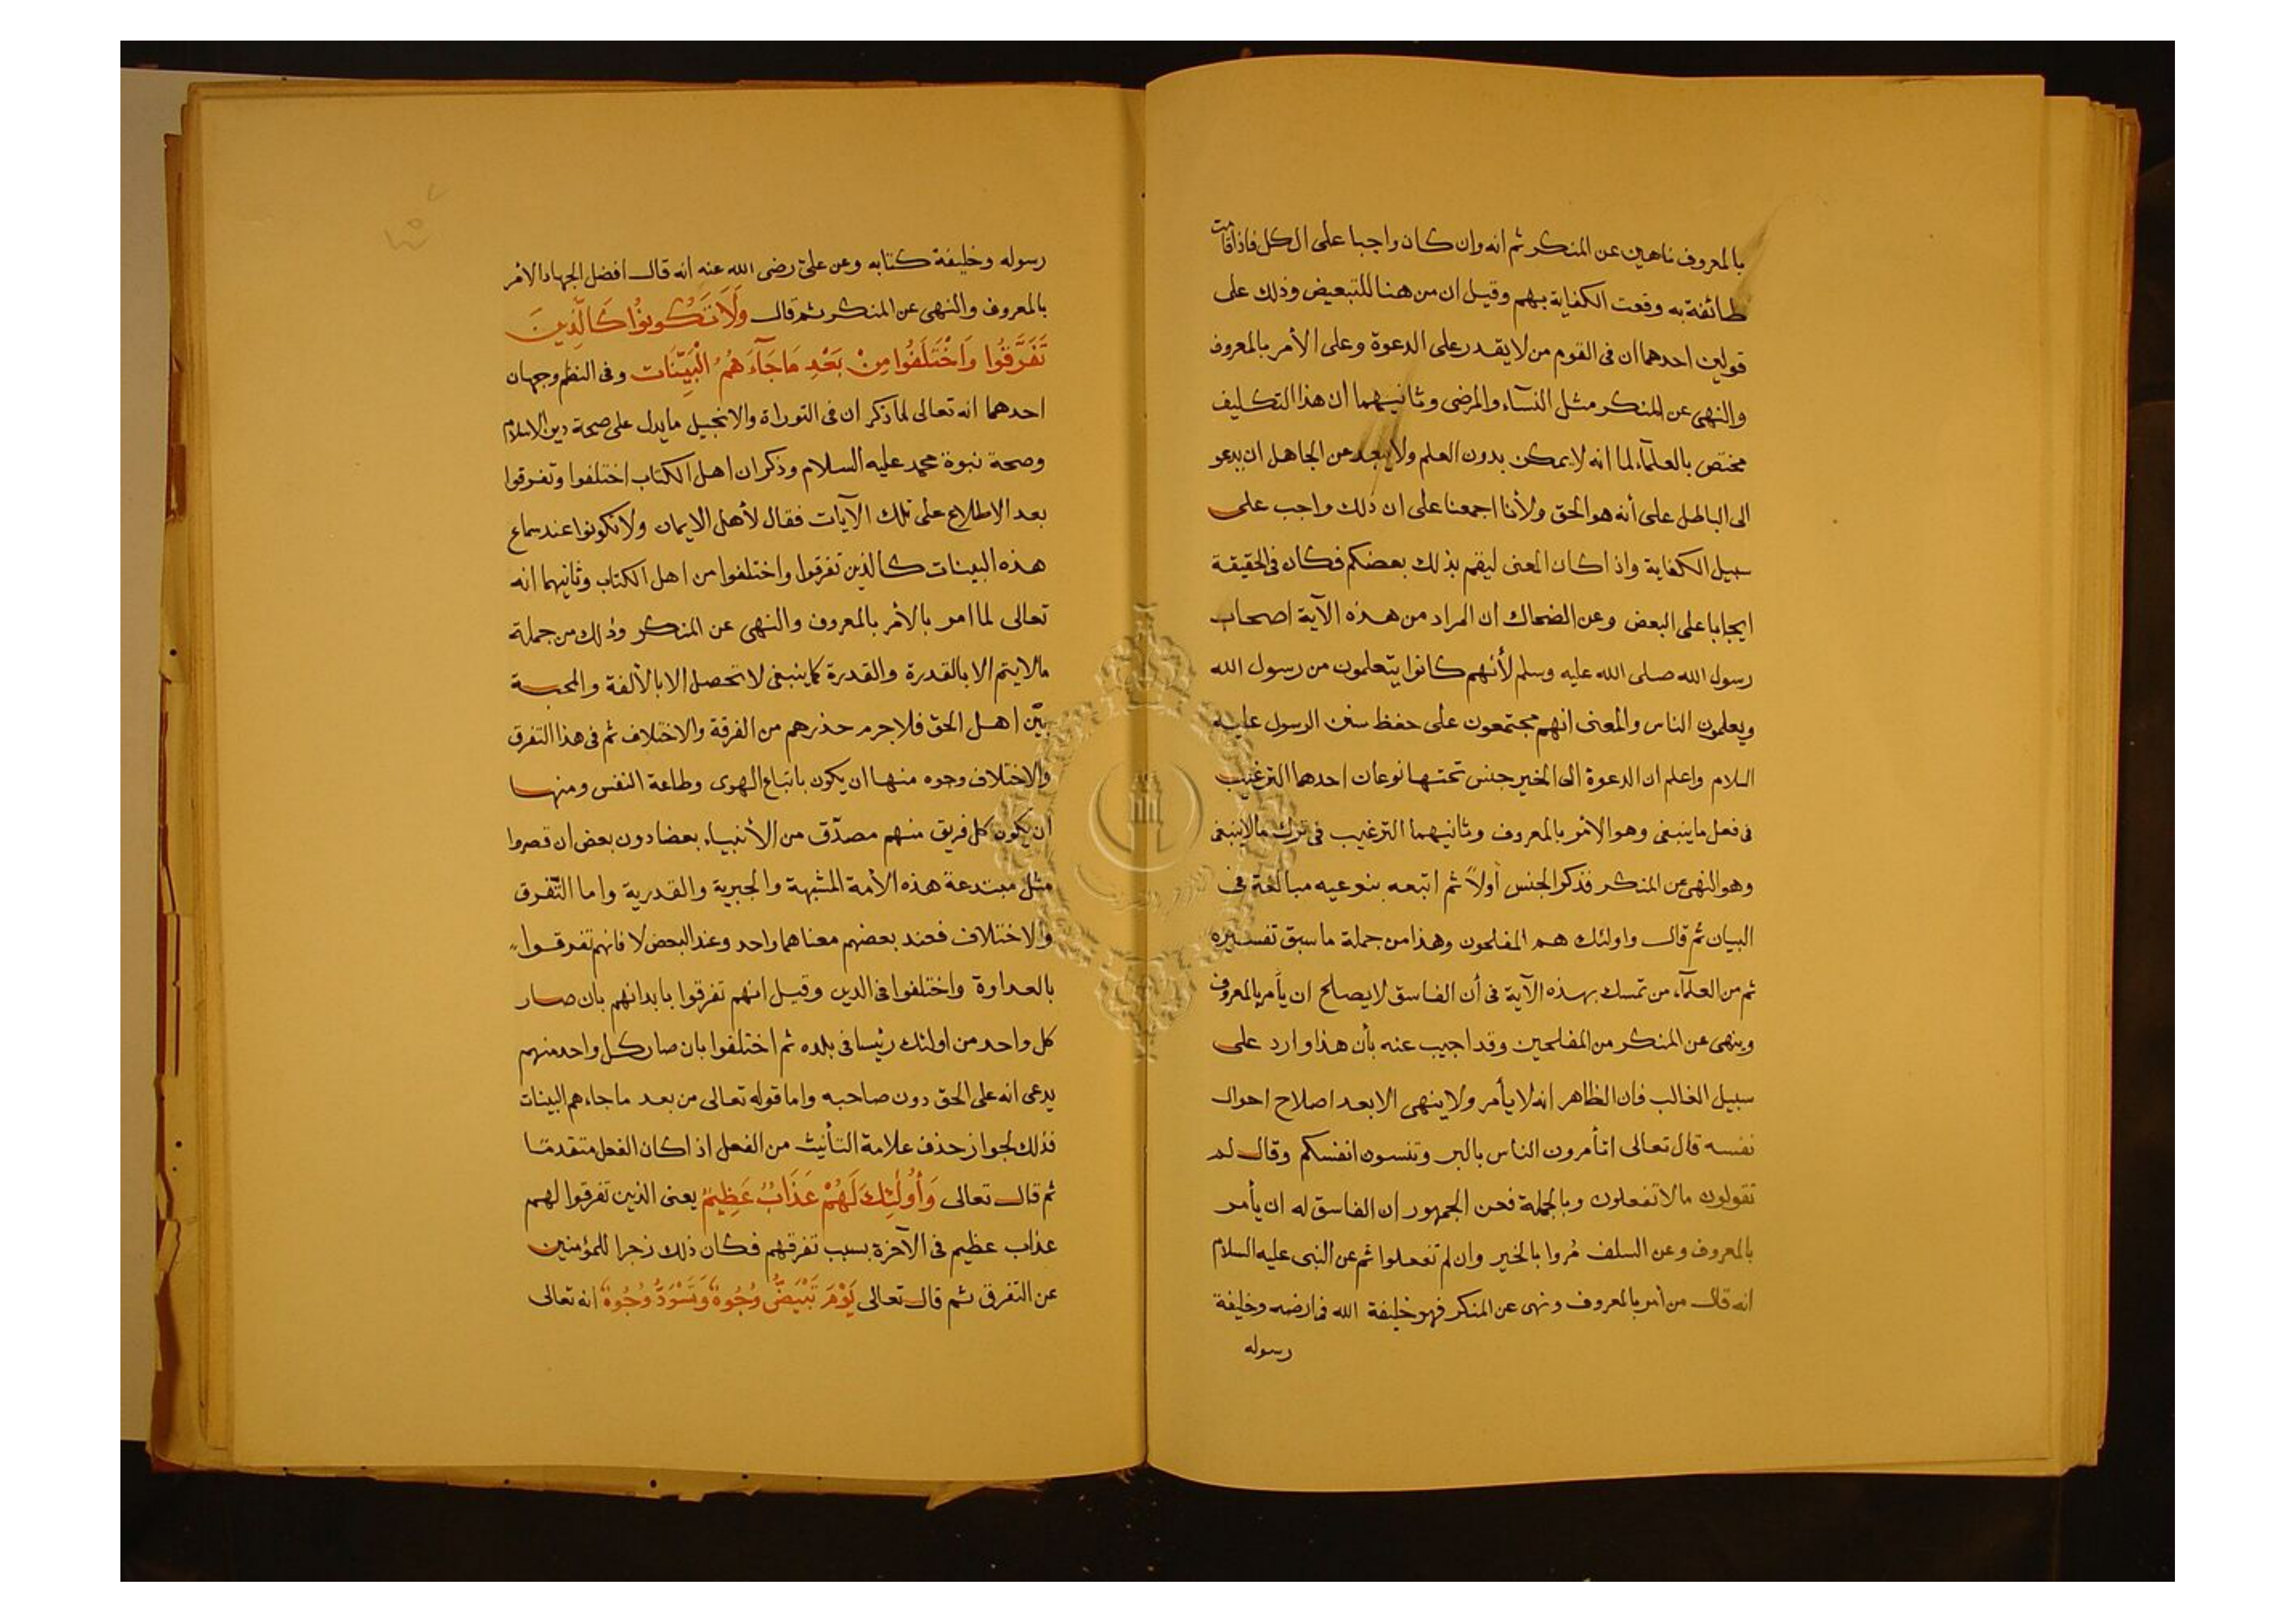 بالمعروف ناهين عن المنكر ثم انه وان كان واجبا على الكل فاذا قامت
طائفة به وقعت الكفاية بهم وقيل ان من هنا للتبعيض وذلك على
قولين احدهما ان فى القوم من لا يقدر على الدعوة وعلى الأمر بالمعروف
والنهى عن المنكر مثل النسآء والمرضى وثانيهما ان هذا التكليف
مختص بالعلمآء لما انه لا يمكن بدون العلم ولا يبعد عن الجاهل ان يدعو
الى الباطل على أنه هو الحق ولأنا اجمعنا على ان ذلك واجب على
سبيل الكفاية واذا كان المعنى ليقم بذلك بعضكم فكان فى الحقيقة
ايجابا على البعض وعن الضحاك ان المراد من هذه الآية اصحاب
رسول الله صلى الله عليه وسلم لأنهم كانوا يتعلمون من رسول الله
ويعلمون الناس والمعنى انهم مجتمعون على حفظ سنن الرسول عليه
السلام واعلم ان الدعوة الى الخير جنس تحتها نوعان احدهما الترغيب
فى فعل ما ينبغى وهو الامر بالمعروف وثانيهما الترغيب فى ترك مالا ينبغى
وهو النهى عن المنكر فذكر الجنس أولاً ثم اتبعه بنوعيه مبالغة فى
البيان ثم قال واولئك هم المفلحون وهذا من جملة ما سبق تفسيره
ثم من العلمآء من تمسك بهذه الآية فى أن الفاسق لا يصلح ان يأمر بالمعروف
وينهى عن المنكر من المفلحين وقد اجيب عنه بأن هذا وارد على
سبيل الغالب فان الظاهر انه لا يأمر ولا ينهى الا بعد اصلاح احوال
نفسه قال تعالى اتأمرون الناس بالبر وتنسون انفسكم وقال لم
تقولون مالا تفعلون وبالجملة فعن الجمهور ان الفاسق له ان يأمر
بالمعروف وعن السلف مُروا بالخير وان لم تفعلوا ثم عن النبى عليه السلام
انه قال من أمر بالمعروف ونهى عن المنكر فهو خليفة الله فى ارضه وخليفة
رسوله
رسوله وخليفة كتابه وعن علىّ رضى الله عنه انه قال افضل الجهاد الامر
بالمعروف والنهى عن المنكر ثم قال وَلَا تَكُونُوا كَالَّذِينَ
تَفَرَّقُوا وَاخْتَلَفُوا مِنْ بَعْدِ مَا جَآءَهُمُ الْبَيِّنَات وفى النظم وجهان
احدهما انه تعالى لما ذكر ان فى التوراة والانجيل ما يدل على صحة دين الاسلام
وصحة نبوة محمد عليه السلام وذكر ان اهل الكتاب اختلفوا وتفرقوا
بعد الاطلاع على تلك الآيات فقال لأهل الايمان ولا تكونوا عند سماع
هذه البينات كالذين تفرقوا واختلفوا من اهل الكتاب وثانيهما انه
تعالى لما امر بالأمر بالمعروف والنهى عن المنكر وذلك من جملة
مالا يتم الا بالقدرة والقدرة كما ينبغى لا تحصل الا بالألفة والمحبة
بيّن اهل الحق فلا جرم حذرهم من الفرقة والاختلاف ثم فى هذا التفرق
والاختلاف وجوه منها ان يكون باتباع الهوى وطاعة النفس ومنها
ان يكون كل فريق منهم مصدّق من الأنبياء بعضا دون بعض ان قصروا
مثل مبتدعة هذه الأمة المشبهة والجبرية والقدرية واما التّفرق
والاختلاف فعند بعضهم معناهما واحد وعند البعض لا فانهم تفرقوا
بالعداوة واختلفوا فى الدين وقيل انهم تفرقوا بابدانهم بان صار
كل واحد من اولئك رئيسا فى بلده ثم اختلفوا بان صار كل واحد منهم
يدعى انه على الحق دون صاحبه واما قوله تعالى من بعد ما جاءهم البينات
فذلك لجواز حذف علامة التأنيث من الفعل اذا كان الفعل متقدمًا
ثم قال تعالى وَأُولَٰئِكَ لَهُمْ عَذَابٌ عَظِيمٌ يعنى الذين تفرقوا لهم
عذاب عظيم فى الآخرة بسبب تفرقهم فكان ذلك زجرا للمؤمنين
عن التفرق ثم قال تعالى يَوْمَ تَبْيَضُّ وُجُوهٌ وَتَسْوَدُّ وُجُوهٌ انه تعالى